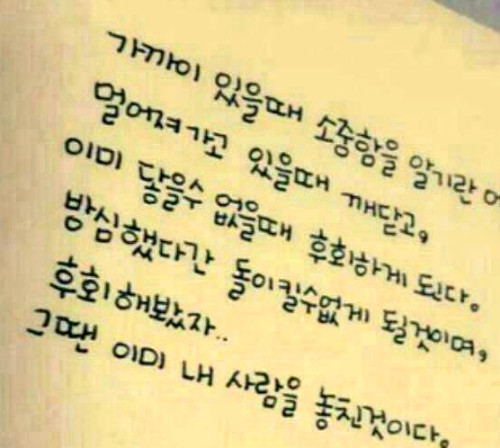 가까이 있을때 소중함을 알기란
멀어져가고 있을때 깨닫고,
이미 닿을수 없을때 후회하게 된다.
방심했다간 돌이킬수없게 될것이며,
후회해봤자..
그땐 이미 내 사람을 놓친것이다.